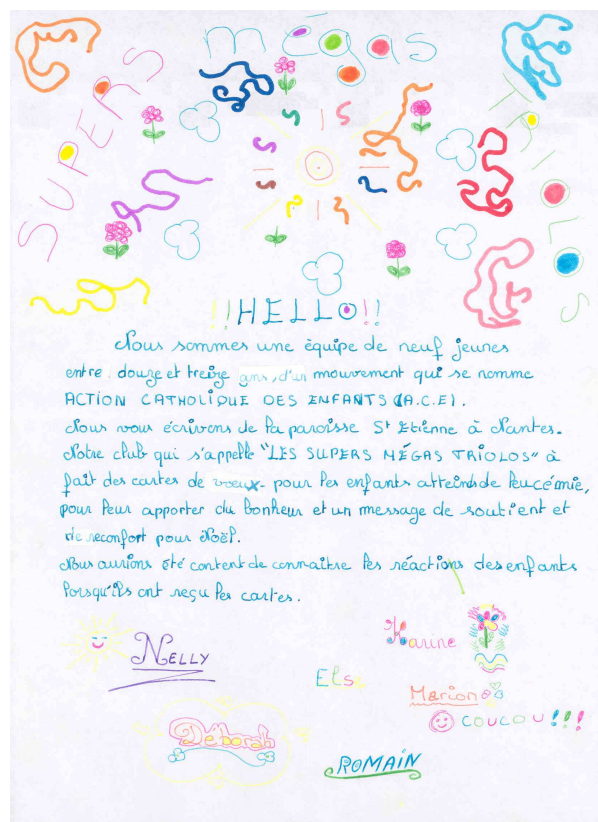 SUPERS mégas TRIOLOS
!!HELLO!!
Nous sommes une équipe de neuf jeunes
entre douze et treize ans, d'un mouvement qui se nomme
ACTION CATHOLIQUE DES ENFANTS (A.C.E).
Nous vous écrivons de la paroisse St Etienne à Nantes.
Notre club qui s'appelle "LES SUPERS MÉGAS TRIOLOS" à
fait des cartes de voeux pour les enfants atteind de leucémie,
pour leur apporter du bonheur et un message de soutient et
de reconfort pour Noël.
Nous aurions été content de connaître les réactions des enfants
lorsqu'ils ont reçu les cartes.
NELLY
Elsa
Marion
COUCOU!!!
Déborah
ROMAIN